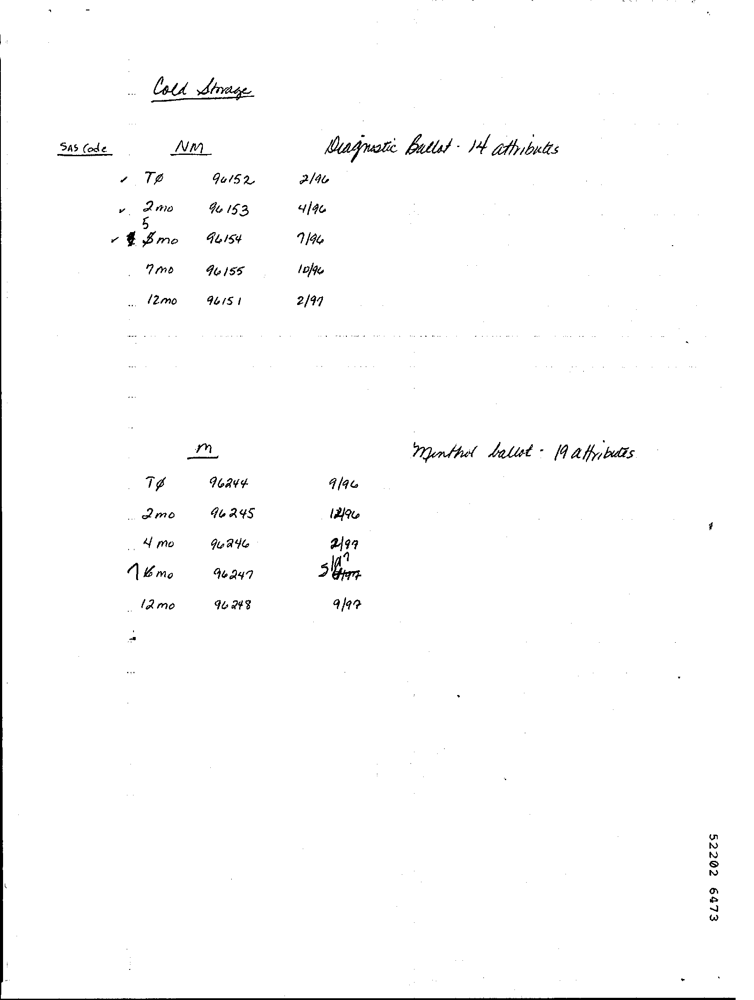 Cold Storage
SAS Code NM Diagnostic Ballot - 14 attributes
✓ TØ 96152 2/96
✓ 2 mo 96153 4/96
5
✓ mo 96154 7/96
7 mo 96155 10/96
12 mo 96151 2/97
M Menthol ballot - 19 attributes
TØ 96244 9/96
2 mo 96245 12/96
4 mo 96246 2/97
7 mo 96247 5/97
12 mo 96248 9/97
52202 6473